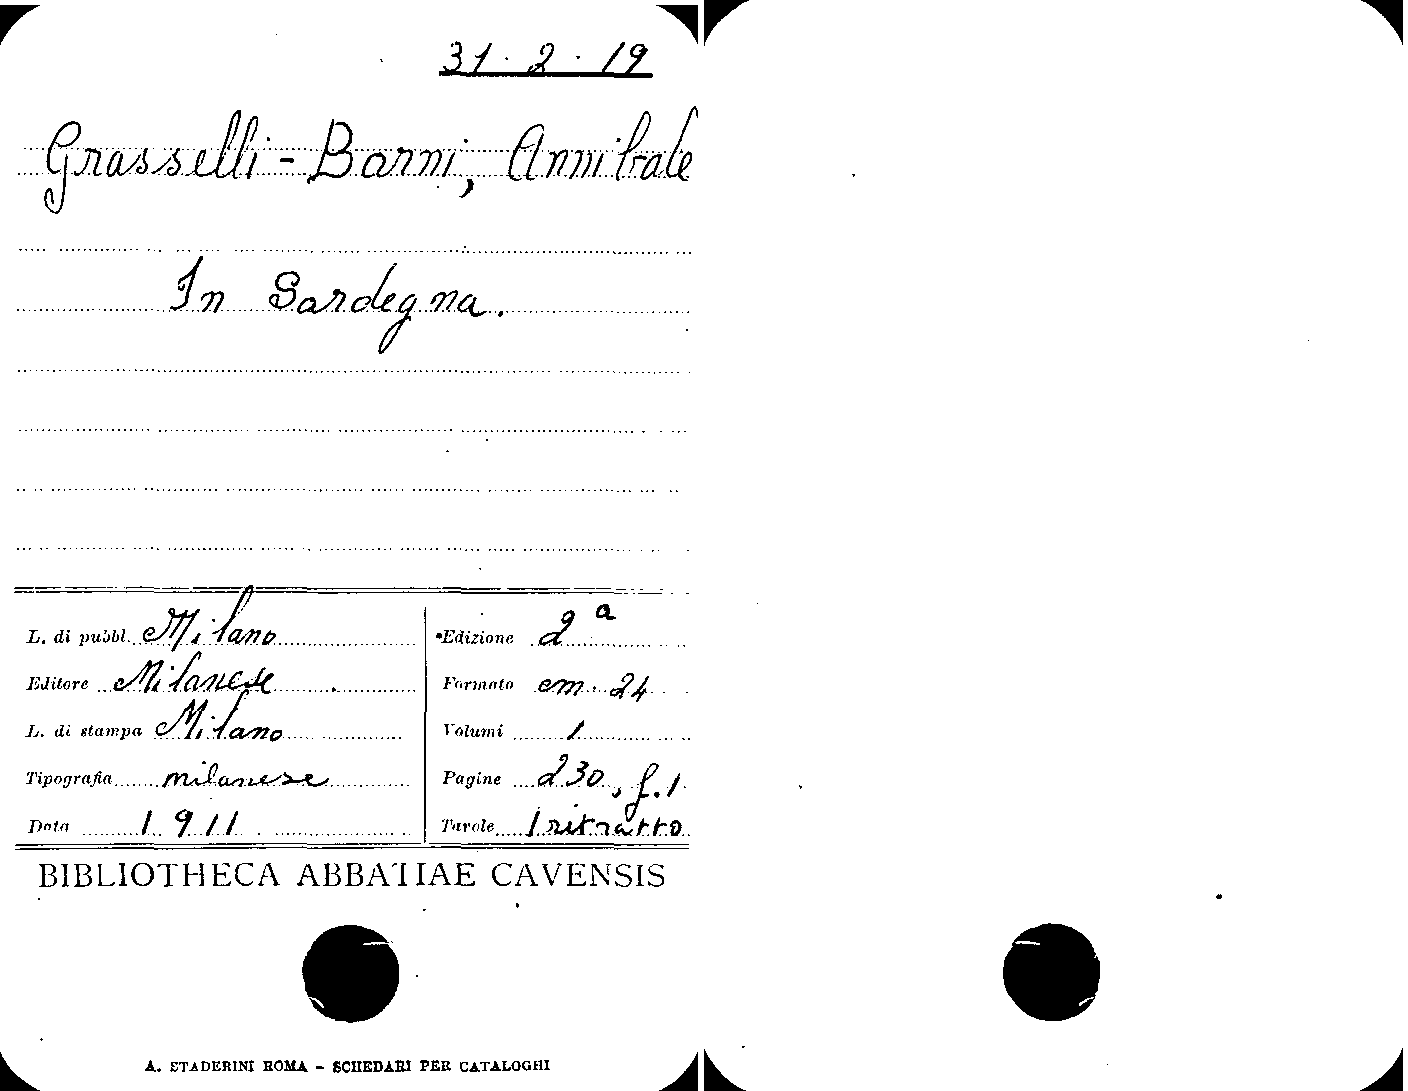 31. 2. 19
Grasselli - Barni, Annibale
In Sardegna.
L. di pubbl. Milano
Editore Milanese
L. di stampa Milano
Tipografia milanese
Data 1911
Edizione 2ª
Formato cm. 24
Volumi 1
Pagine 230, f. 1
Tavole 1 ritratto
BIBLIOTHECA ABBATIAE CAVENSIS
A. STADERINI ROMA - SCHEDARI PER CATALOGHI